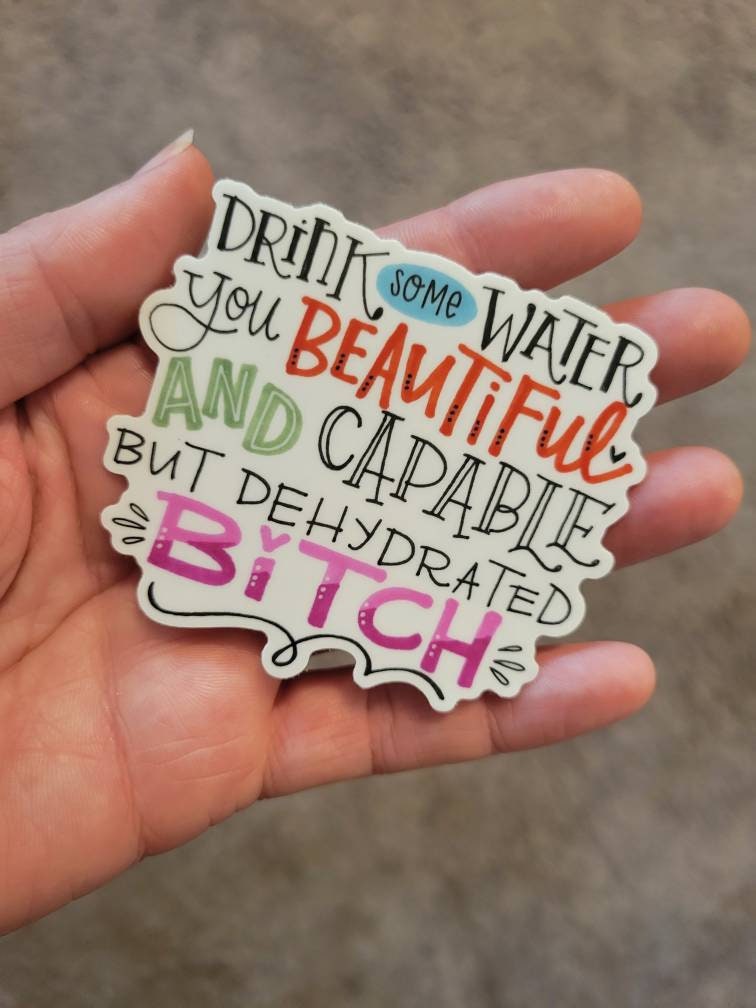 DRiNK SOME WATER
you BEAUTiFul
AND CAPABLE
BUT DEHYDRATED
BiTCH